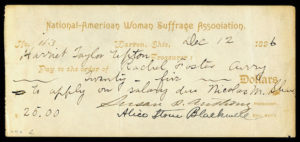 National-American Woman Suffrage Association.
No. 113 Warren, Ohio, Dec 12 1896
Harriet Taylor Upton
Treasurer:
Pay to the order of Rachel Foster Avery
Twenty-five Dollars
To apply on salary due Nicolas M.
Susan B. Anthony
25.00 Alice Stone Blackwell